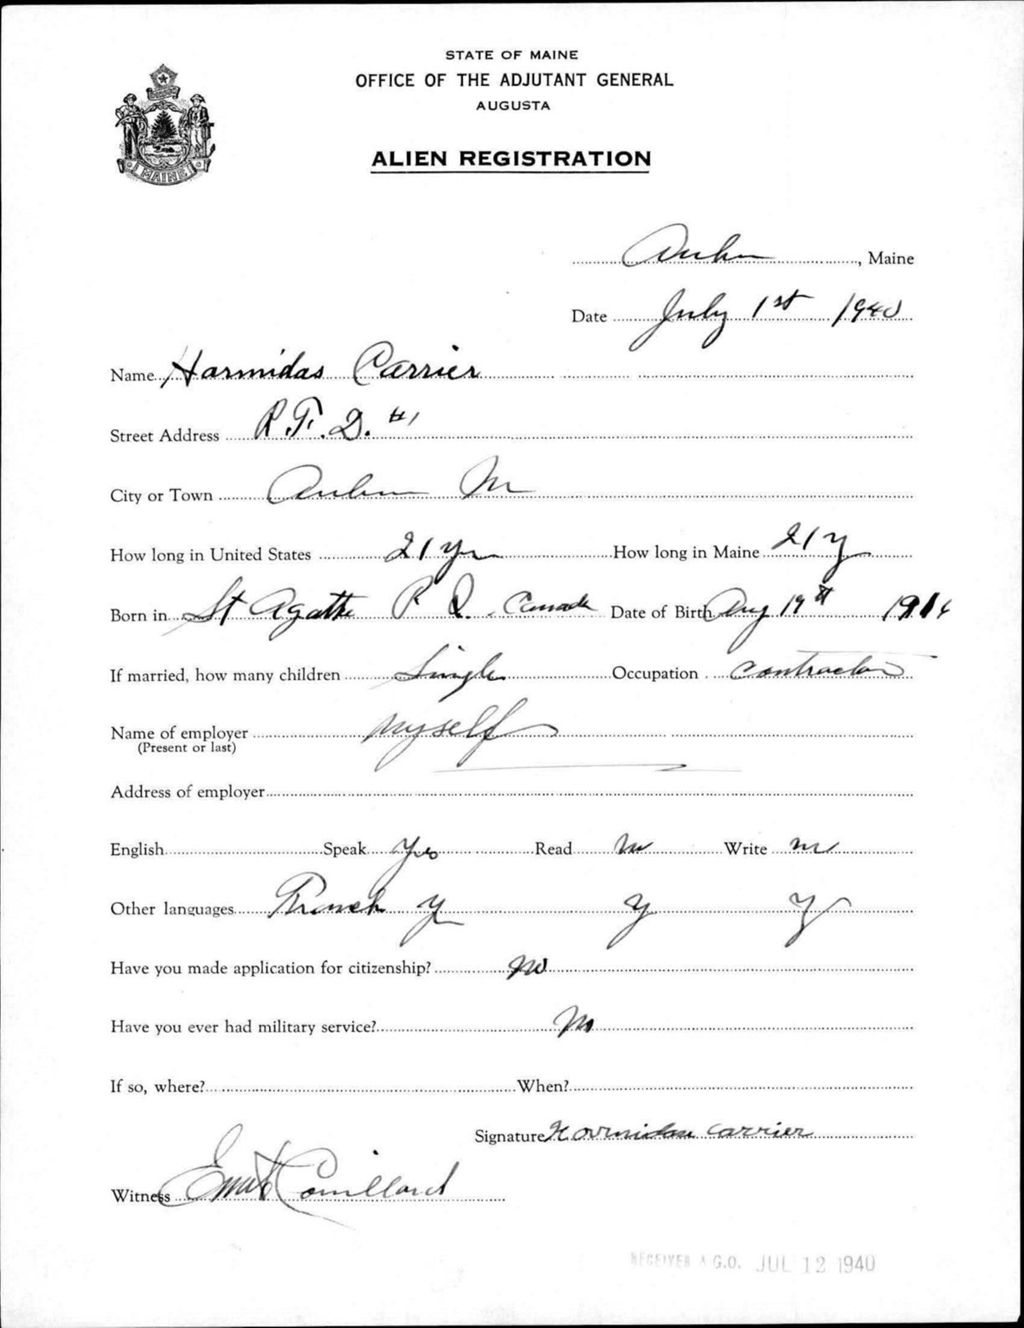 STATE OF MAINE
OFFICE OF THE ADJUTANT GENERAL
AUGUSTA
ALIEN REGISTRATION
MAINE
Auburn, Maine
Date July 1st 1940
Name Harmidas Carrier
Street Address R.F.D. #1
City or Town Auburn M
How long in United States 21 yrs How long in Maine 21 y
Born in St Agathe P Q. Canada Date of Birth Aug 19th 1914
If married, how many children Single Occupation Contractor
Name of employer myself
(Present or last)
Address of employer
English Speak Yes Read no Write no
Other languages French y y y
Have you made application for citizenship? no
Have you ever had military service? no
If so, where? When?
Signature Hormidas Carrier
Witness Couillard
RECEIVED A.G.O. JUL 12 1940